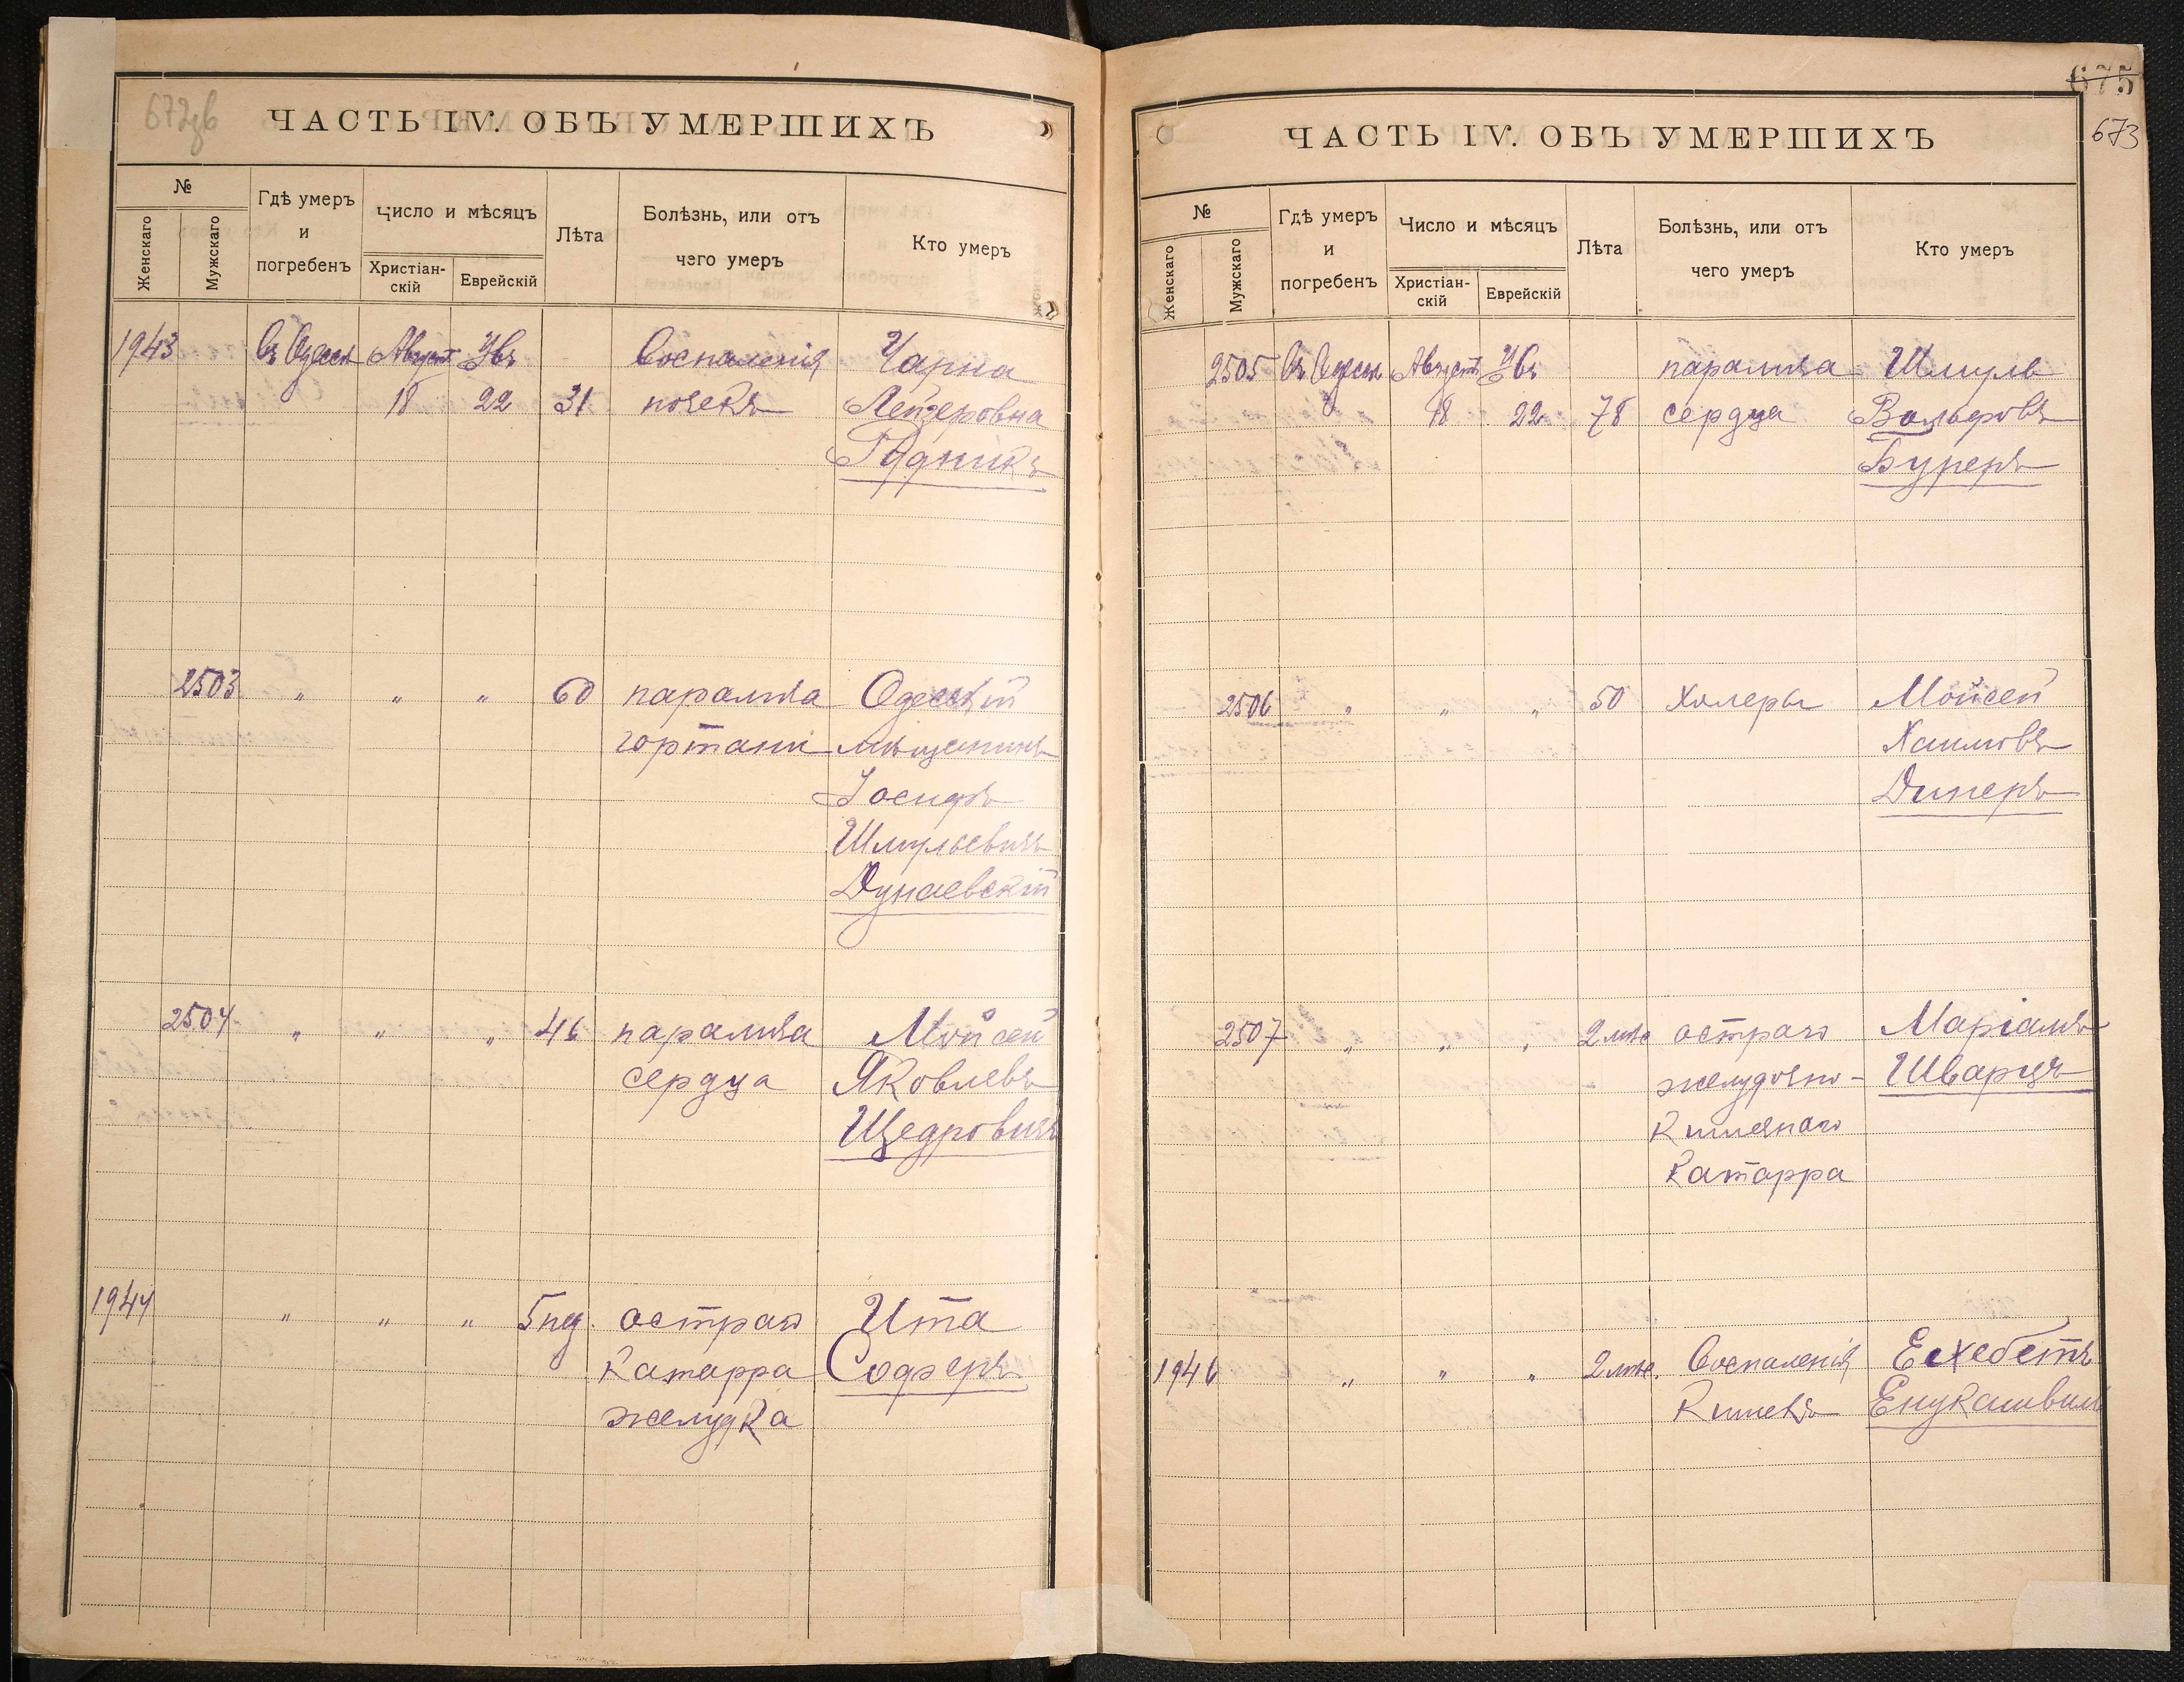 672об
ЧАСТЬ IV. ОБЪ УМЕРШИХЪ
№
Женскаго
Мужскаго
Гдѣ умеръ
и
погребенъ
Число и мѣсяцъ
Христіан-
скій
Еврейскій
Лѣта
Болѣзнь, или отъ
чего умеръ
Кто умеръ
1943 Въ Одессѣ Августъ Увъ Воспаленія Чарна
18 22 31 почекъ Лейзеровна
2503 " " " 60 паралича Одесскій
гортани мѣщанинъ
Іосифъ
Шмулевичъ
Дунаевскій
2504 " " " 46 паралича Мойсей
сердца Яковлевъ
Щедровичъ
1944 " " " 5 нд. остраго Ита
катарра Содзеръ
желудка
675
673
ЧАСТЬ IV. ОБЪ УМЕРШИХЪ
№
Женскаго
Мужскаго
Гдѣ умеръ
и
погребенъ
Число и мѣсяцъ
Христіан-
скій
Еврейскій
Лѣта
Болѣзнь, или отъ
чего умеръ
Кто умеръ
2505 Въ Одессѣ Августъ Увъ паралича Шмуль
18 22 78 сердца Вольфовъ
2506 " " " 50 холеры Мойсей
Хаимовъ
Динеръ
2507 " " " 2 мѣс остраго Маріамъ
желудочно- Шварцъ
кишечнаго
катарра
1946 " " " 2 мѣс. Воспаленія Ехебетъ
кишекъ Енукашвили